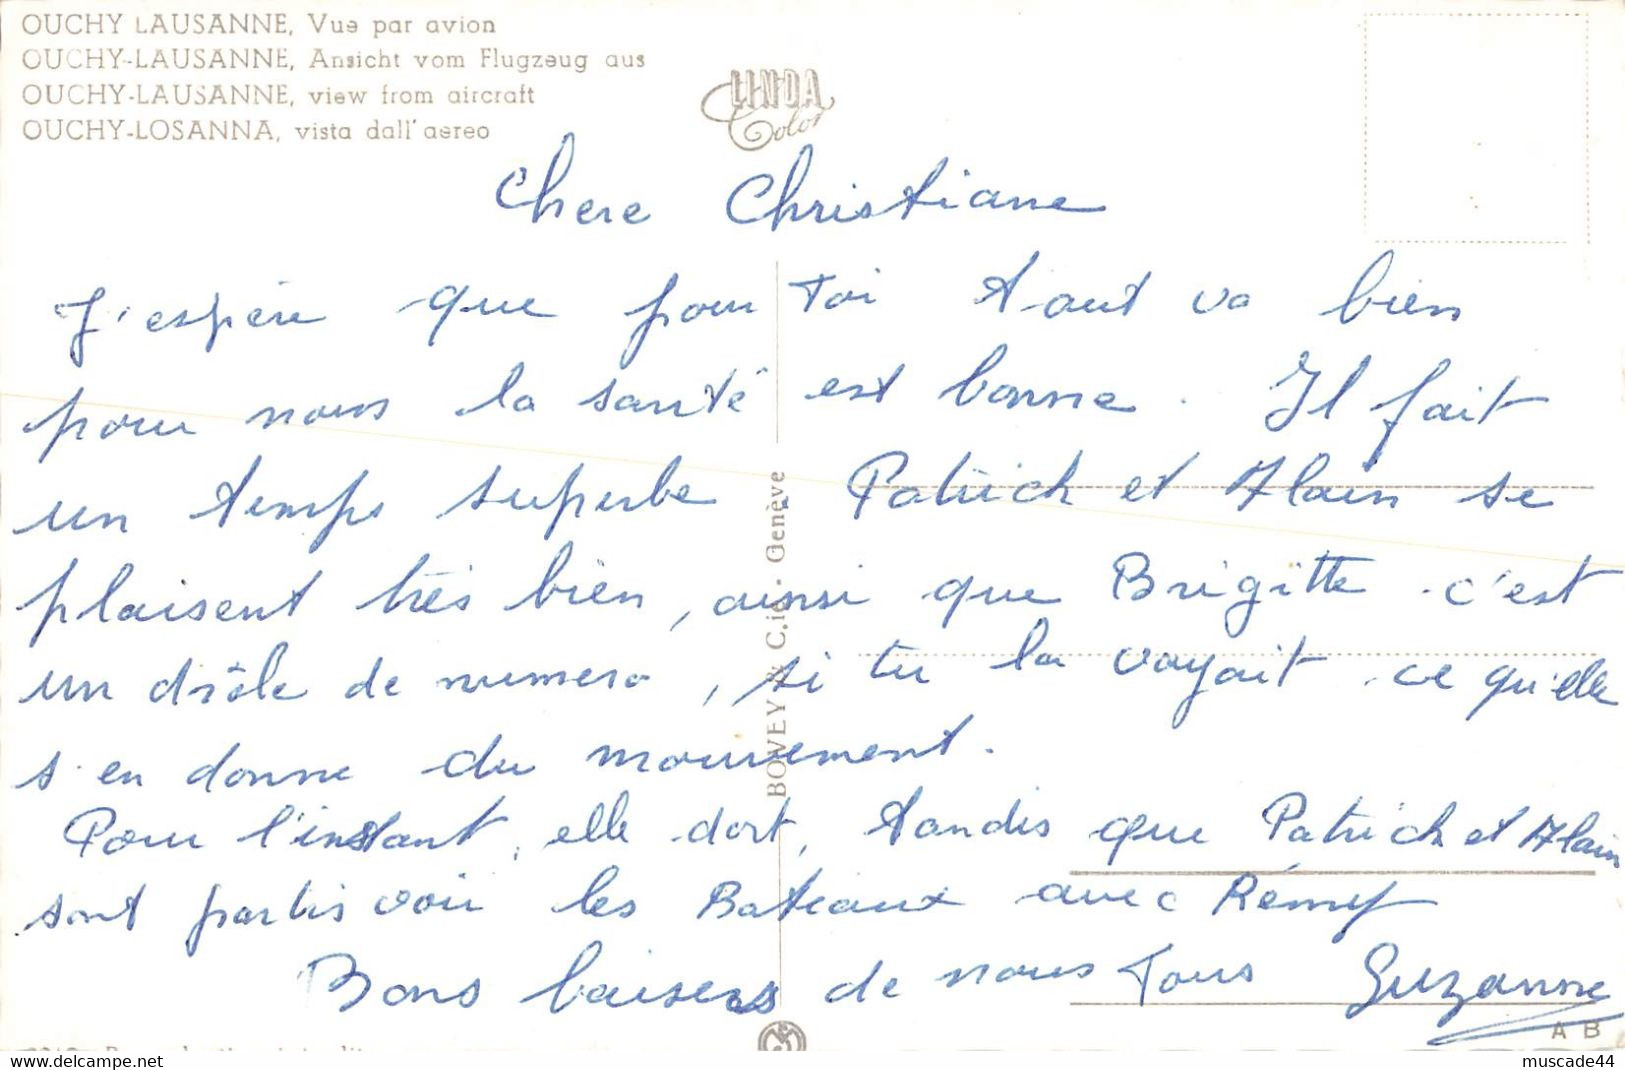 OUCHY LAUSANNE, Vue par avion
OUCHY-LAUSANNE, Ansicht vom Flugzeug aus
OUCHY-LAUSANNE, view from aircraft
OUCHY-LOSANNA, vista dall'aereo
LINDA
Color
Chere Christiane
J'espère que pour toi tout va bien
pour nous la santé est bonne. Il fait
un temps superbe Patrick et Alain se
plaisent très bien, ainsi que Brigitte. c'est
un drôle de numero, si tu la voyait. ce qu'elle
s'en donne du mouvement.
Pour l'instant, elle dort, tandis que Patrick et Alain
sont partis voir les Bateaux avec Rémy
Bons baisers de nous Tous Suzanne
BOVEY & C.ie - Genève
A B
See the back side : www.delcampe.net
muscade44